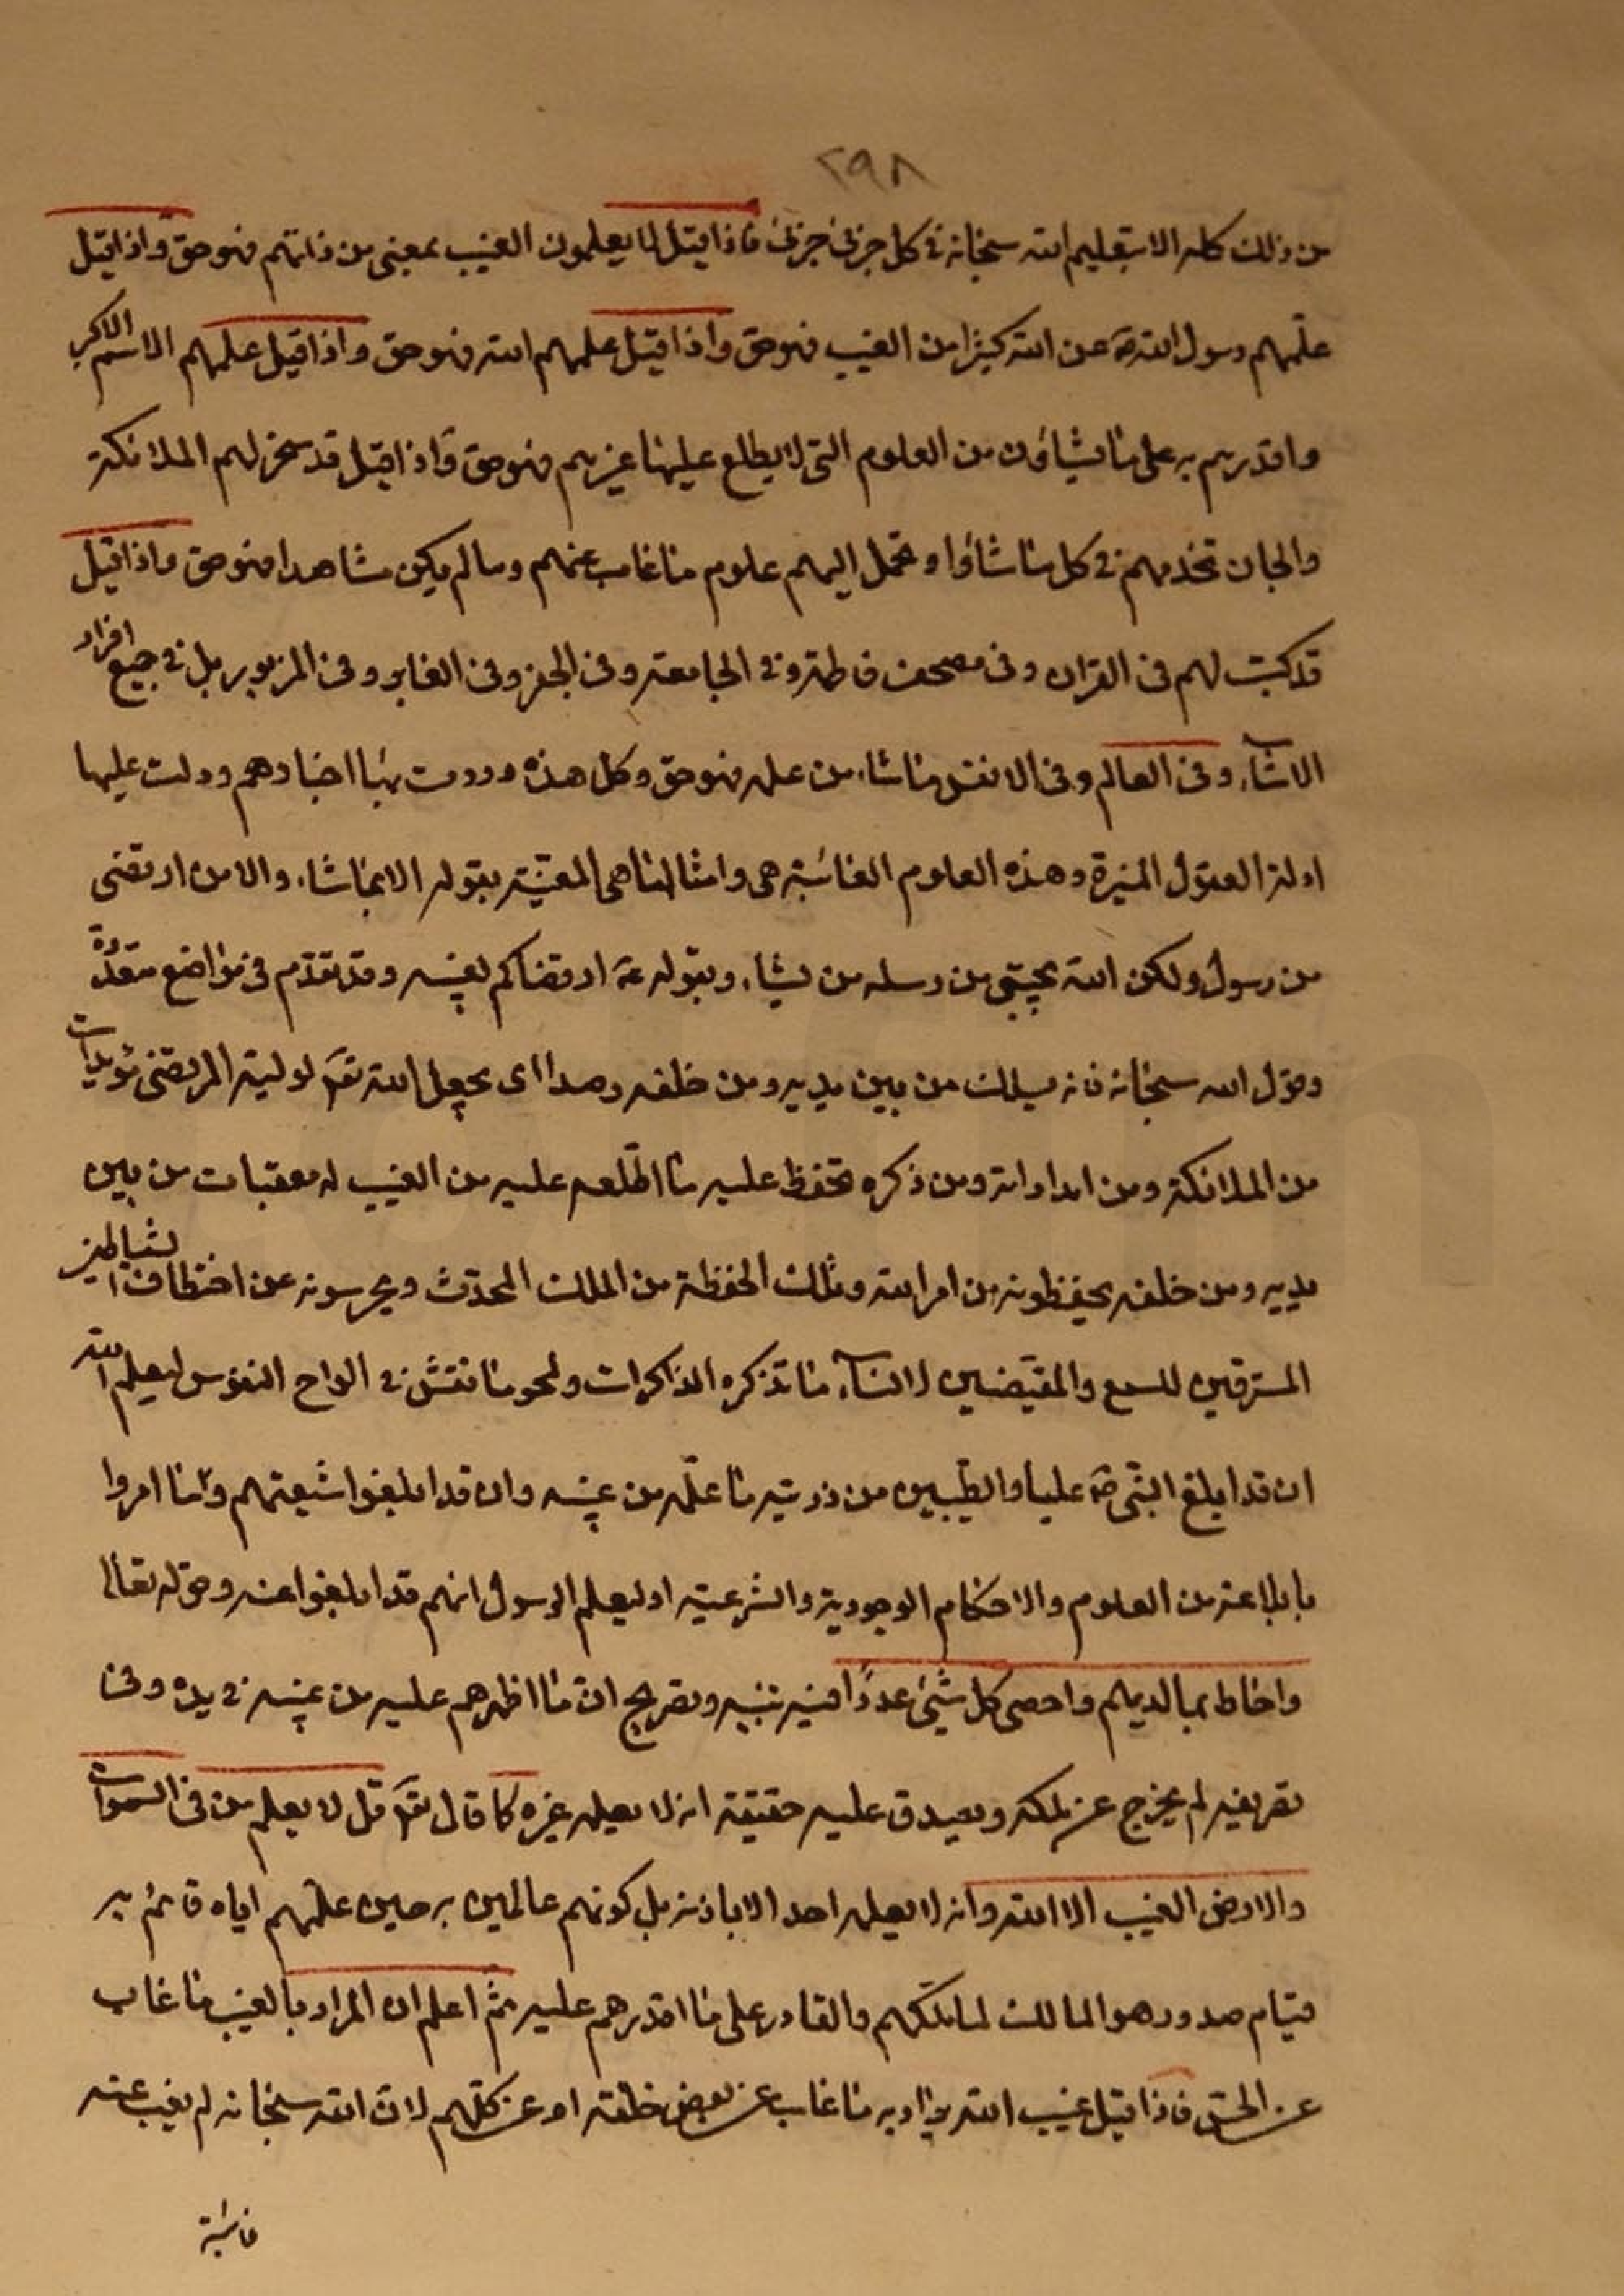 ٢٩٨
من ذلك كله الا بتعليم الله سبحانه في كل جزئ جزئ فاذا قيل لا يعلمون الغيب بمعنى من ذاتهم فهو حق واذا قيل
علّمهم رسول الله ص عن الله كثيرا من الغيب فهو حق واذا قيل علمهم الله فهو حق واذا قيل علمهم الاسم الاكبر
واقدرهم به على ما يشاؤن من العلوم التى لا يطلع عليها غيرهم فهو حق واذا قيل قد سخر لهم الملائكة
والجان تخدمهم في كل ما شاؤا وتحمل اليهم علوم ما غاب عنهم وما لم يكن مشاهدا فهو حق واذا قيل
قد كتبت لهم فى القران وفى مصحف فاطمة وفي الجامعة وفى الجفر وفى الغابر وفى المزبور بل في جميع افراد
الاشياء وفى العالم وفى الانفس ما شاء من علمه فهو حق وكل هذه وردت بها اخبارهم ودلت عليها
ادلة العقول المنيرة وهذه العلوم الغائبة هى وامثالها هى المعنيّة بقوله الا بما شاء والا من ارتضى
من رسول ولكن الله يجتبى من رسله من يشاء وبقوله ع ارتضاكم لغيبه وقد تقدم فى مواضع متعدّدة
وقول الله سبحانه فانه يسلك من بين يديه ومن خلفه رصدا اى يجعل الله تعالى لوليه المرتضى مؤيدات
من الملائكة ومن امداداته ومن ذكره تحفظ عليه ما اطّلعه عليه من الغيب له معقبات من بين
يديه ومن خلفه يحفظونه من امر الله وتلك الحفظة من الملك المحدّث ويحرسونه عن اختطاف الشياطين
المسترقين للسمع والمقيضين لانساء ما تذكره الذاكرات ولمحو ما نقش في الواح النفوس ليعلم الله
ان قد ابلغ النبّى ص عليا والطيّبين من ذريته ما علّمه من غيبه وان قد ابلغوا شيعتهم وما امروا
بابلاغه من العلوم والاحكام الوجودية والشرعيّة او ليعلم الرسول انهم قد ابلغوا عنه وقوله تعالى
واحاط بما لديهم واحصى كل شيئ عددًا فيه تنبيه وتصريح ان ما اظهرهم عليه من غيبه في يده وفى
تصريفه لم يخرج عن ملكه ويصدق عليه حقيقة انه لا يعلمه غيره كما قال تعالى قل لا يعلم من فى السموات
والارض الغيب الا الله وانه لا يعلمه احد الا باذنه بل كونهم عالمين به حين علّمهم اياه قائم به
قيام صدور هو المالك لما ملكهم والقادر على ما اقدرهم عليه ثم اعلم ان المراد بالغيب ما غاب
عن الحسّ فاذا قيل غيب الله يراد به ما غاب عن بعض خلقه او عن كلهم لان الله سبحانه لم يغب عنه
غائبة